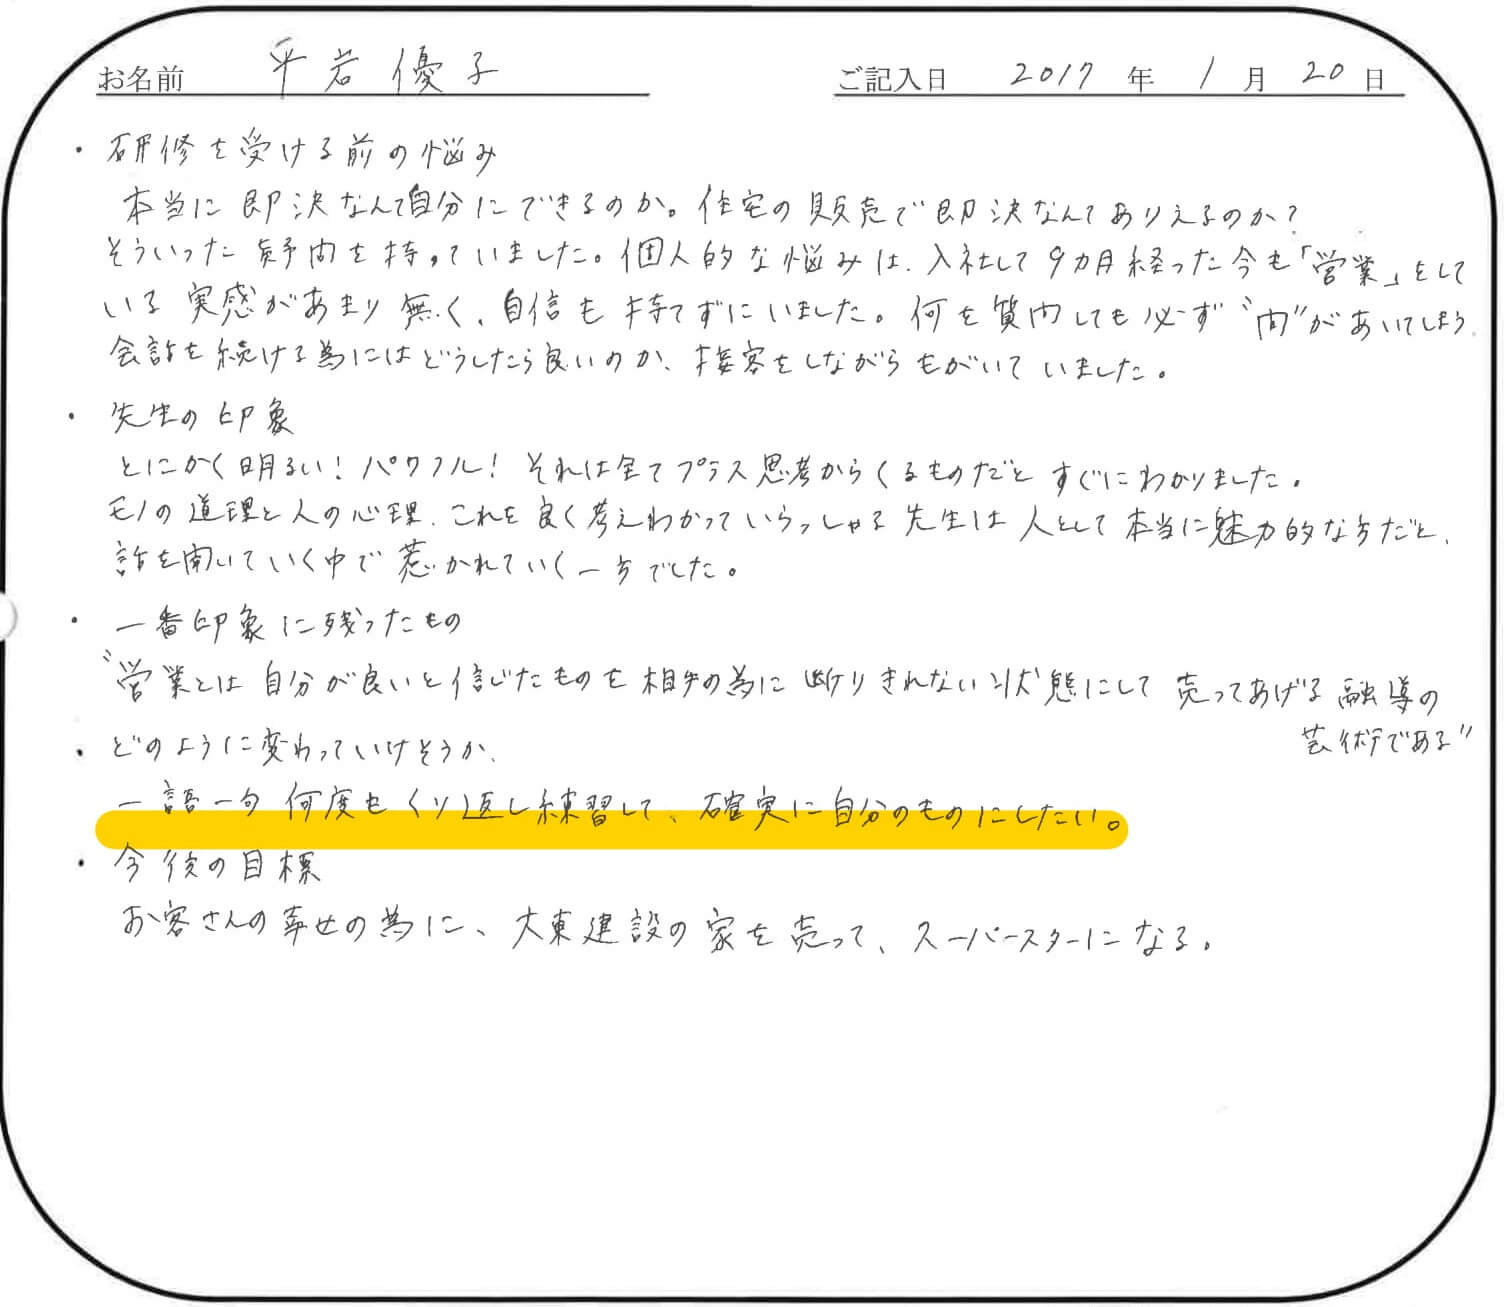 お名前 平岩優子 ご記入日 2017年1月20日
・研修を受ける前の悩み
本当に即決なんて自分にできるのか。住宅の販売で即決なんてありえるのか?
そういった疑問を持っていました。個人的な悩みは、入社して9カ月経った今も「営業」をして
いる実感があまり無く、自信も持てずにいました。何を質問しても必ず“間”があいてしまう
会話を続ける為にはどうしたら良いのか、接客をしながらもがいていました。
・先生の印象
とにかく明るい!パワフル!それは全てプラス思考からくるものだとすぐにわかりました。
モノの道理と人の心理、これを良く考えわかっていらっしゃる先生は人として本当に魅力的な方だと、
話を聞いていく中で惹かれていく一方でした。
・一番印象に残ったもの
“営業とは自分が良いと信じたものを相手の為に断りきれない状態にして売ってあげる融導の
芸術である”
・どのように変わっていけそうか、
一語一句何度もくり返し練習して、確実に自分のものにしたい。
・今後の目標
お客さんの幸せの為に、大東建設の家を売って、スーパースターになる。